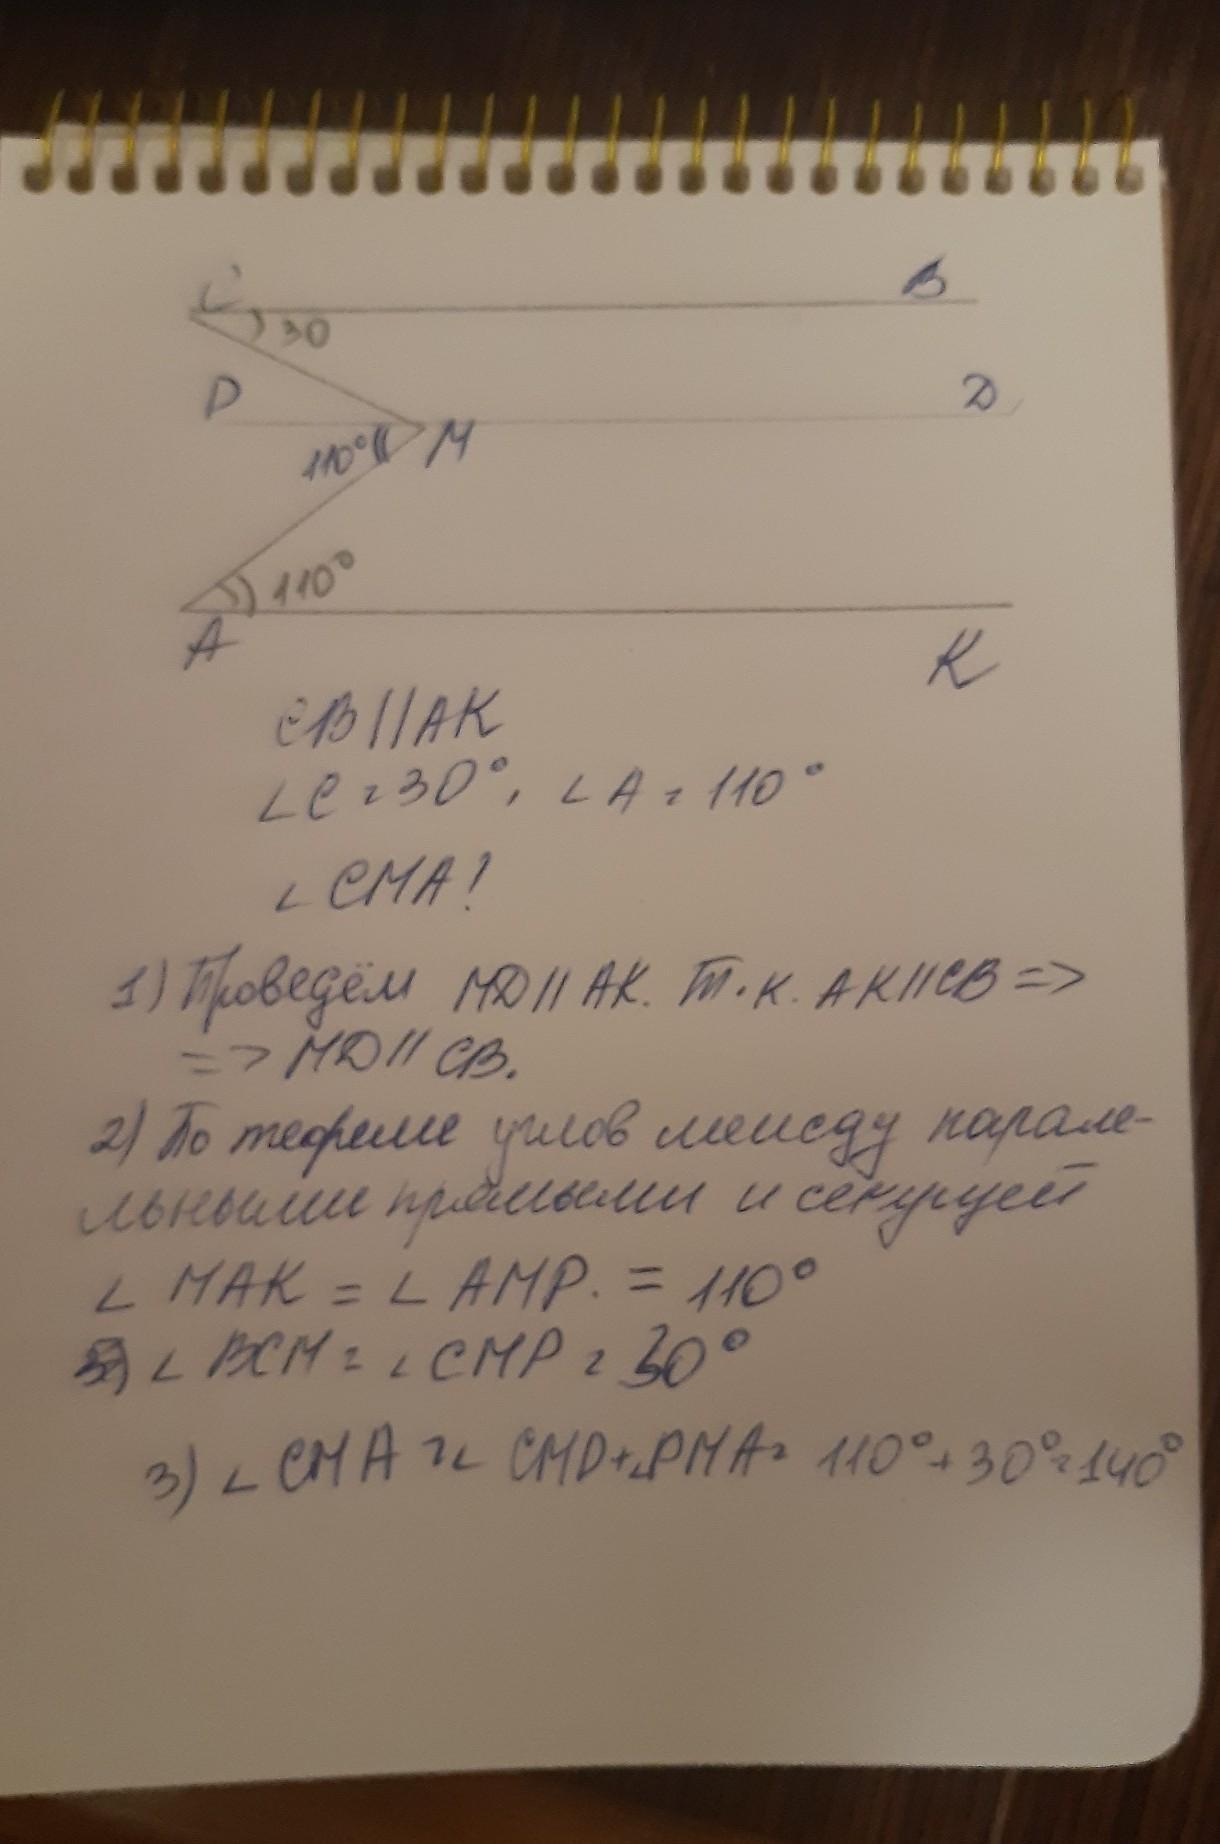 C B
30
P D
110° M
110°
A K
CB || AK
∠C = 30°, ∠A = 110°
∠CMA?
1) Проведём MD || AK. Т.к. AK || CB =>
=> MD || CB.
2) По теореме углов между парале-
льными прямыми и секущей
∠MAK = ∠AMP. = 110°
∠BCM = ∠CMP = 30°
3) ∠CMA = ∠CMD + ∠PMA = 110° + 30° = 140°